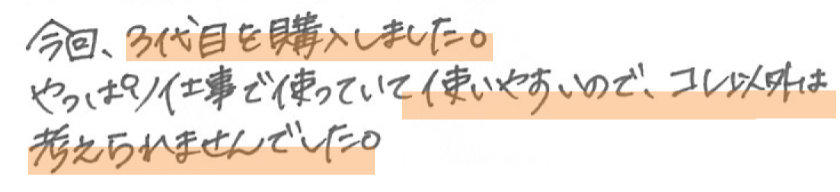 今回、3代目を購入しました。
やっぱり仕事で使っていて使いやすいので、コレ以外は
考えられませんでした。